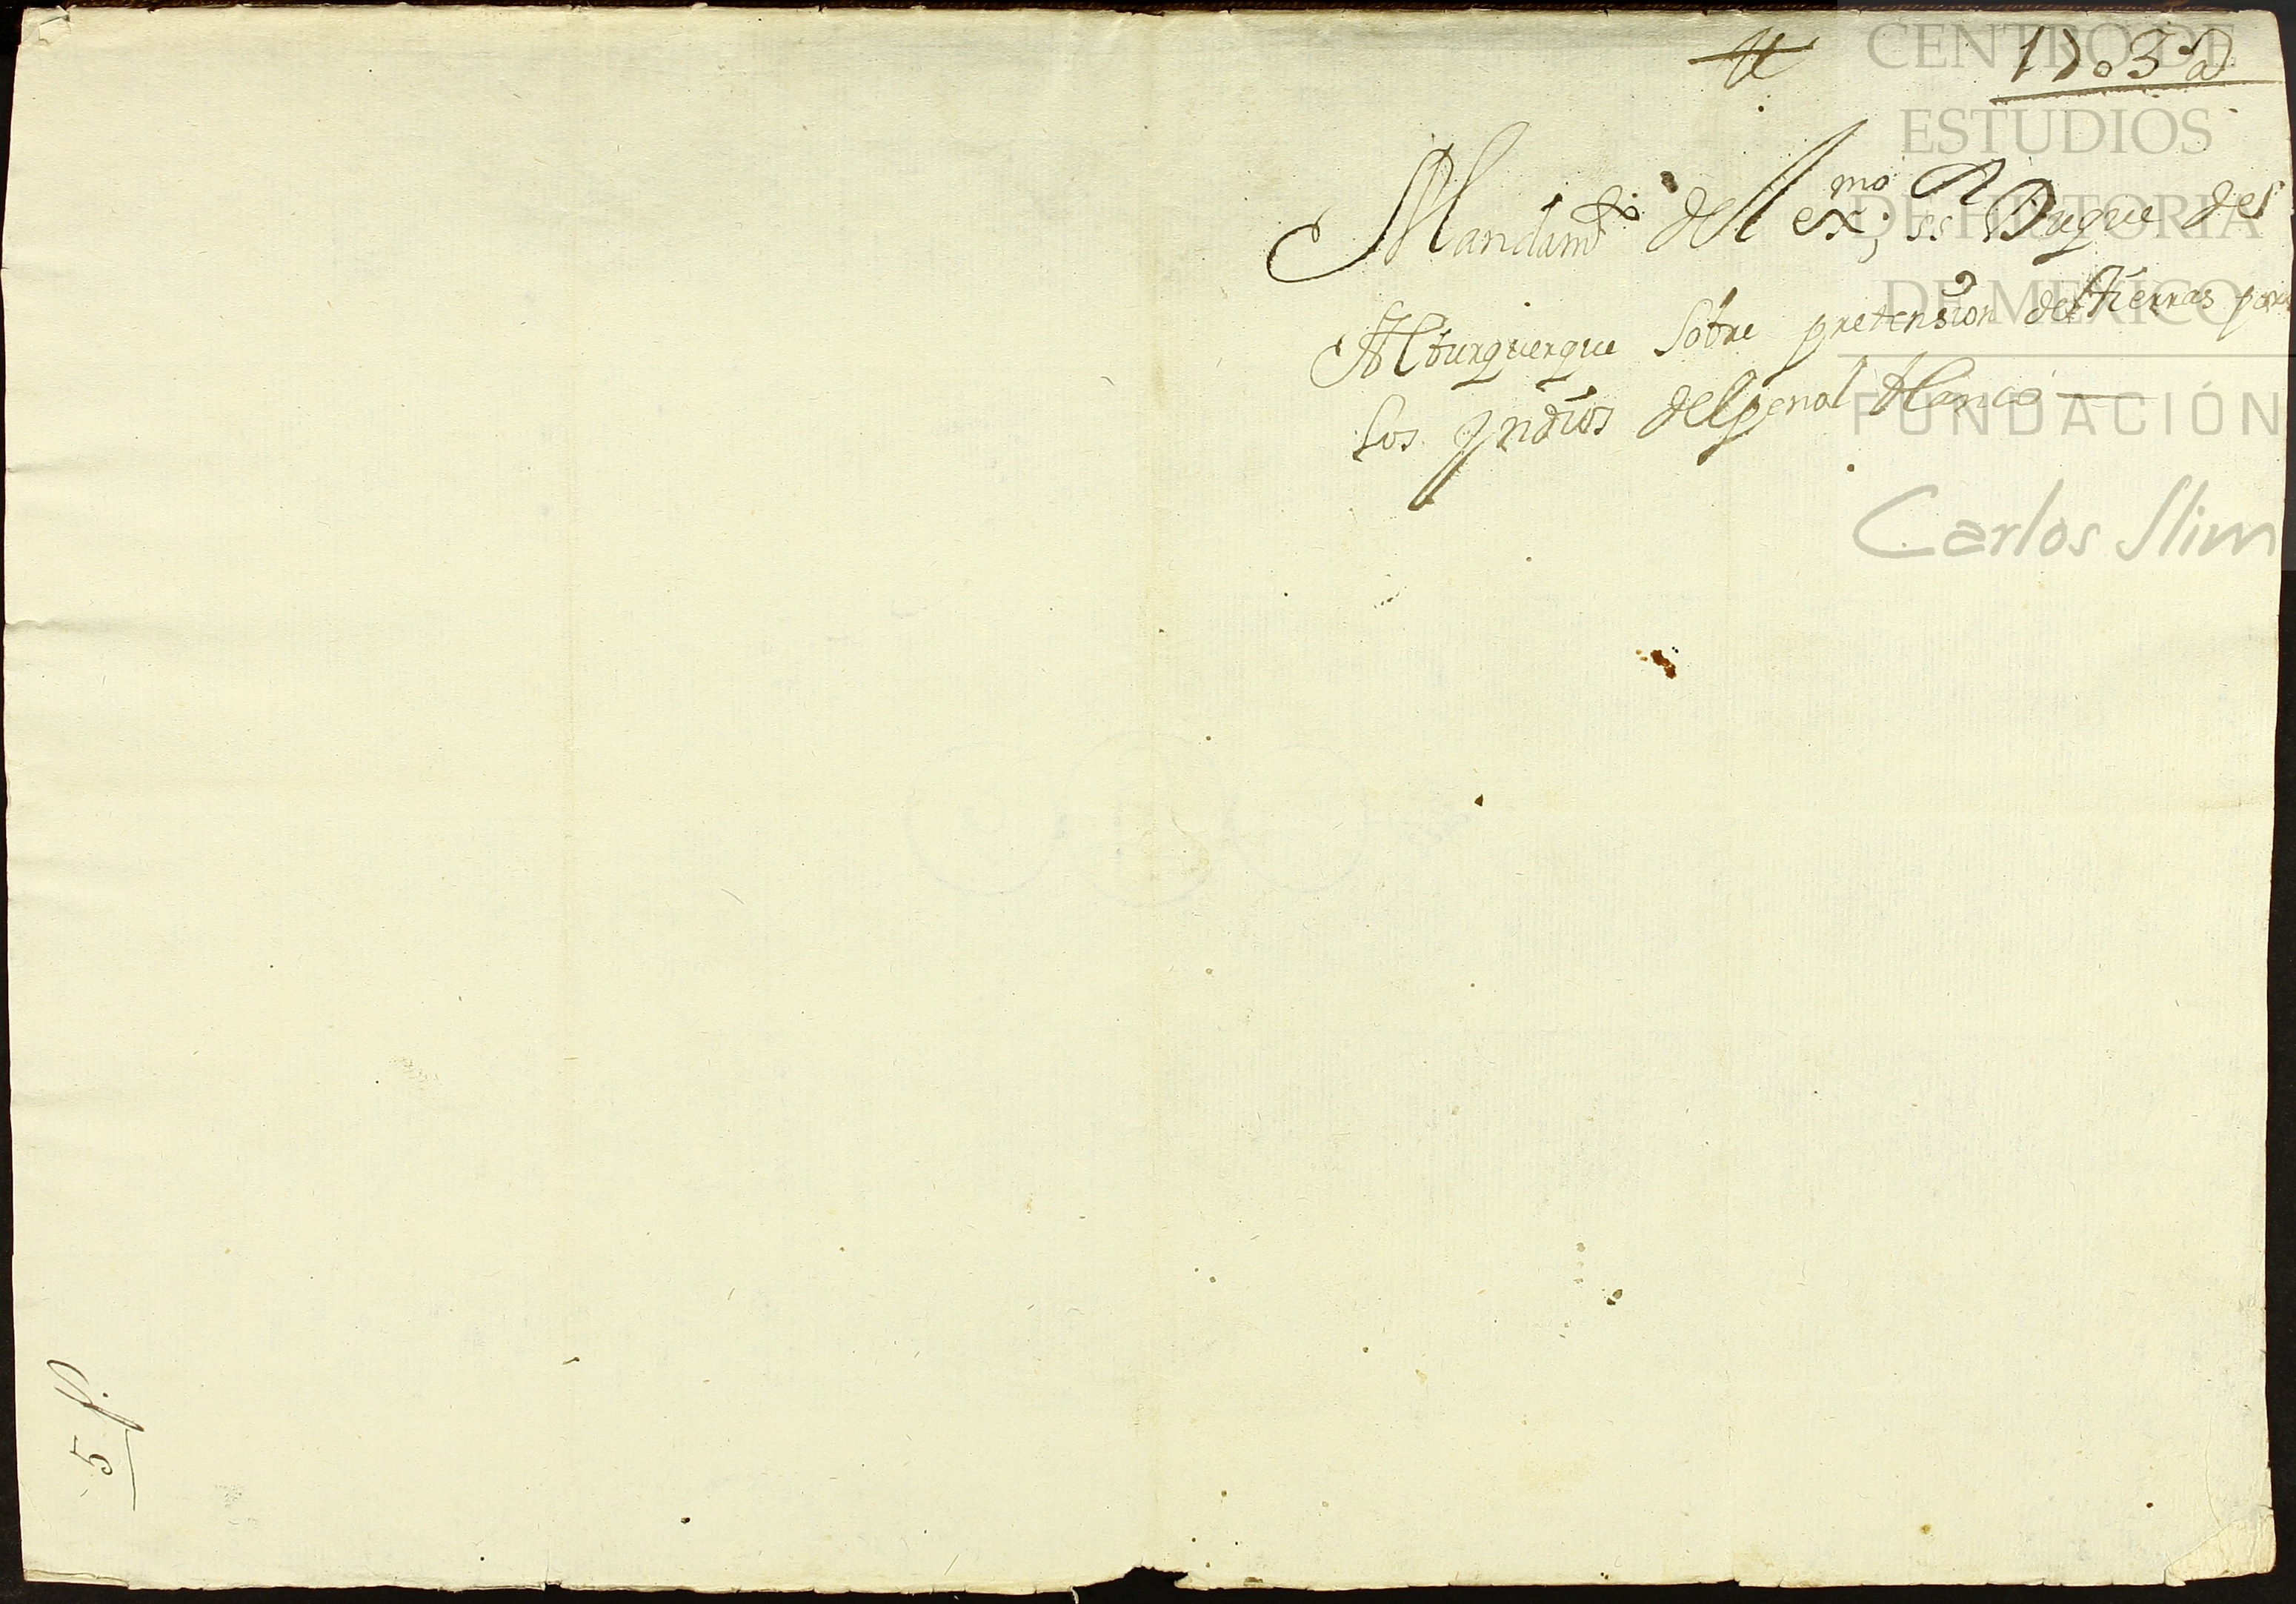 1703 a.
Mandam.to del ex.mo ss.r Duque de
Alburquerque Sobre pretension de tierras para
los Yndios del penol blanco
CENTRO DE
ESTUDIOS
DE HISTORIA
DE MEXICO
FUNDACIÓN
Carlos Slim
5 f.